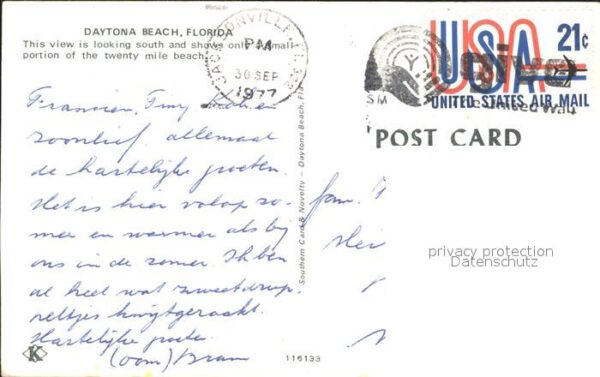 DAYTONA BEACH, FLORIDA
This view is looking south and shows only a small
portion of the twenty mile beach.
JACKSONVILLE, FL
PM
30 SEP
1977
USA 21c
UNITED STATES AIR MAIL
POST CARD
Francien, Tiny, en
zoonlief, allemaal
de hartelijke groeten.
Het is hier volop zo-
mer en warmer als bij
ons in de zomer. Ik ben
al heel wat zweetdrup-
peltjes kwijtgeraakt.
Hartelijke groeten
(oom) Bram
Southern Card & Novelty - Daytona Beach, Fla.
fam.
Hei
privacy protection
Datenschutz
K
116133